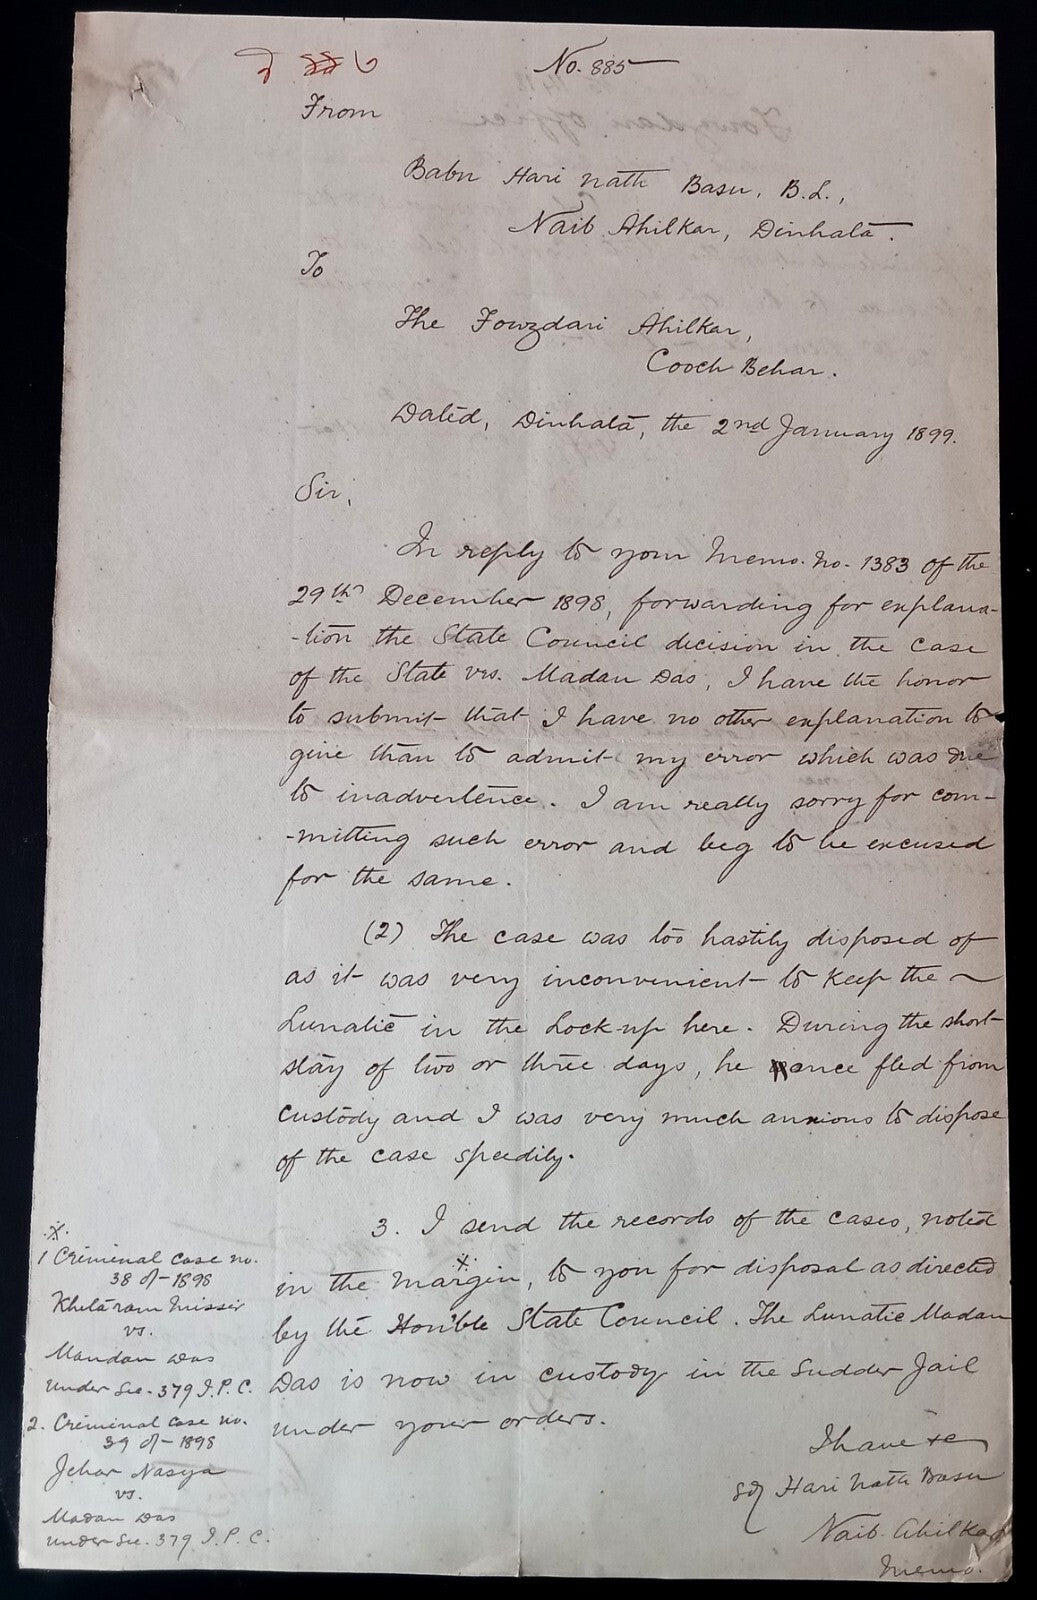 No. 885
From
Babu Hari Nath Basu, B.L.,
Naib Ahilkar, Dinhata.
To
The Fowzdari Ahilkar,
Cooch Behar.
Dated, Dinhata, the 2nd January 1899.
Sir,
In reply to your Memo. No. 1383 of the
29th December 1898, forwarding for explana-
-tion the State Council decision in the case
of the State vrs. Madan Das, I have the honor
to submit that I have no other explanation to
give than to admit my error which was due
to inadvertence. I am really sorry for com-
-mitting such error and beg to be excused
for the same.
(2) The case was too hastily disposed of
as it was very inconvenient to keep the
Lunatic in the Lock-up here. During the short
stay of two or three days, he once fled from
custody and I was very much anxious to dispose
of the case speedily.
3. I send the records of the cases, noted
in the margin,* to you for disposal as directed
by the Hon'ble State Council. The Lunatic Madan
Das is now in custody in the Sudder Jail
under your orders.
I have &c
Sd/ Hari Nath Basu
Naib Ahilkar
Memo.
*
1 Criminal Case No.
38 of 1898
Khelaram Missir
vs.
Mandan Das
under Sec. 379 I.P.C.
2. Criminal Case No.
39 of 1898
Jehar Nasya
vs.
Madan Das
under Sec. 379 I.P.C.